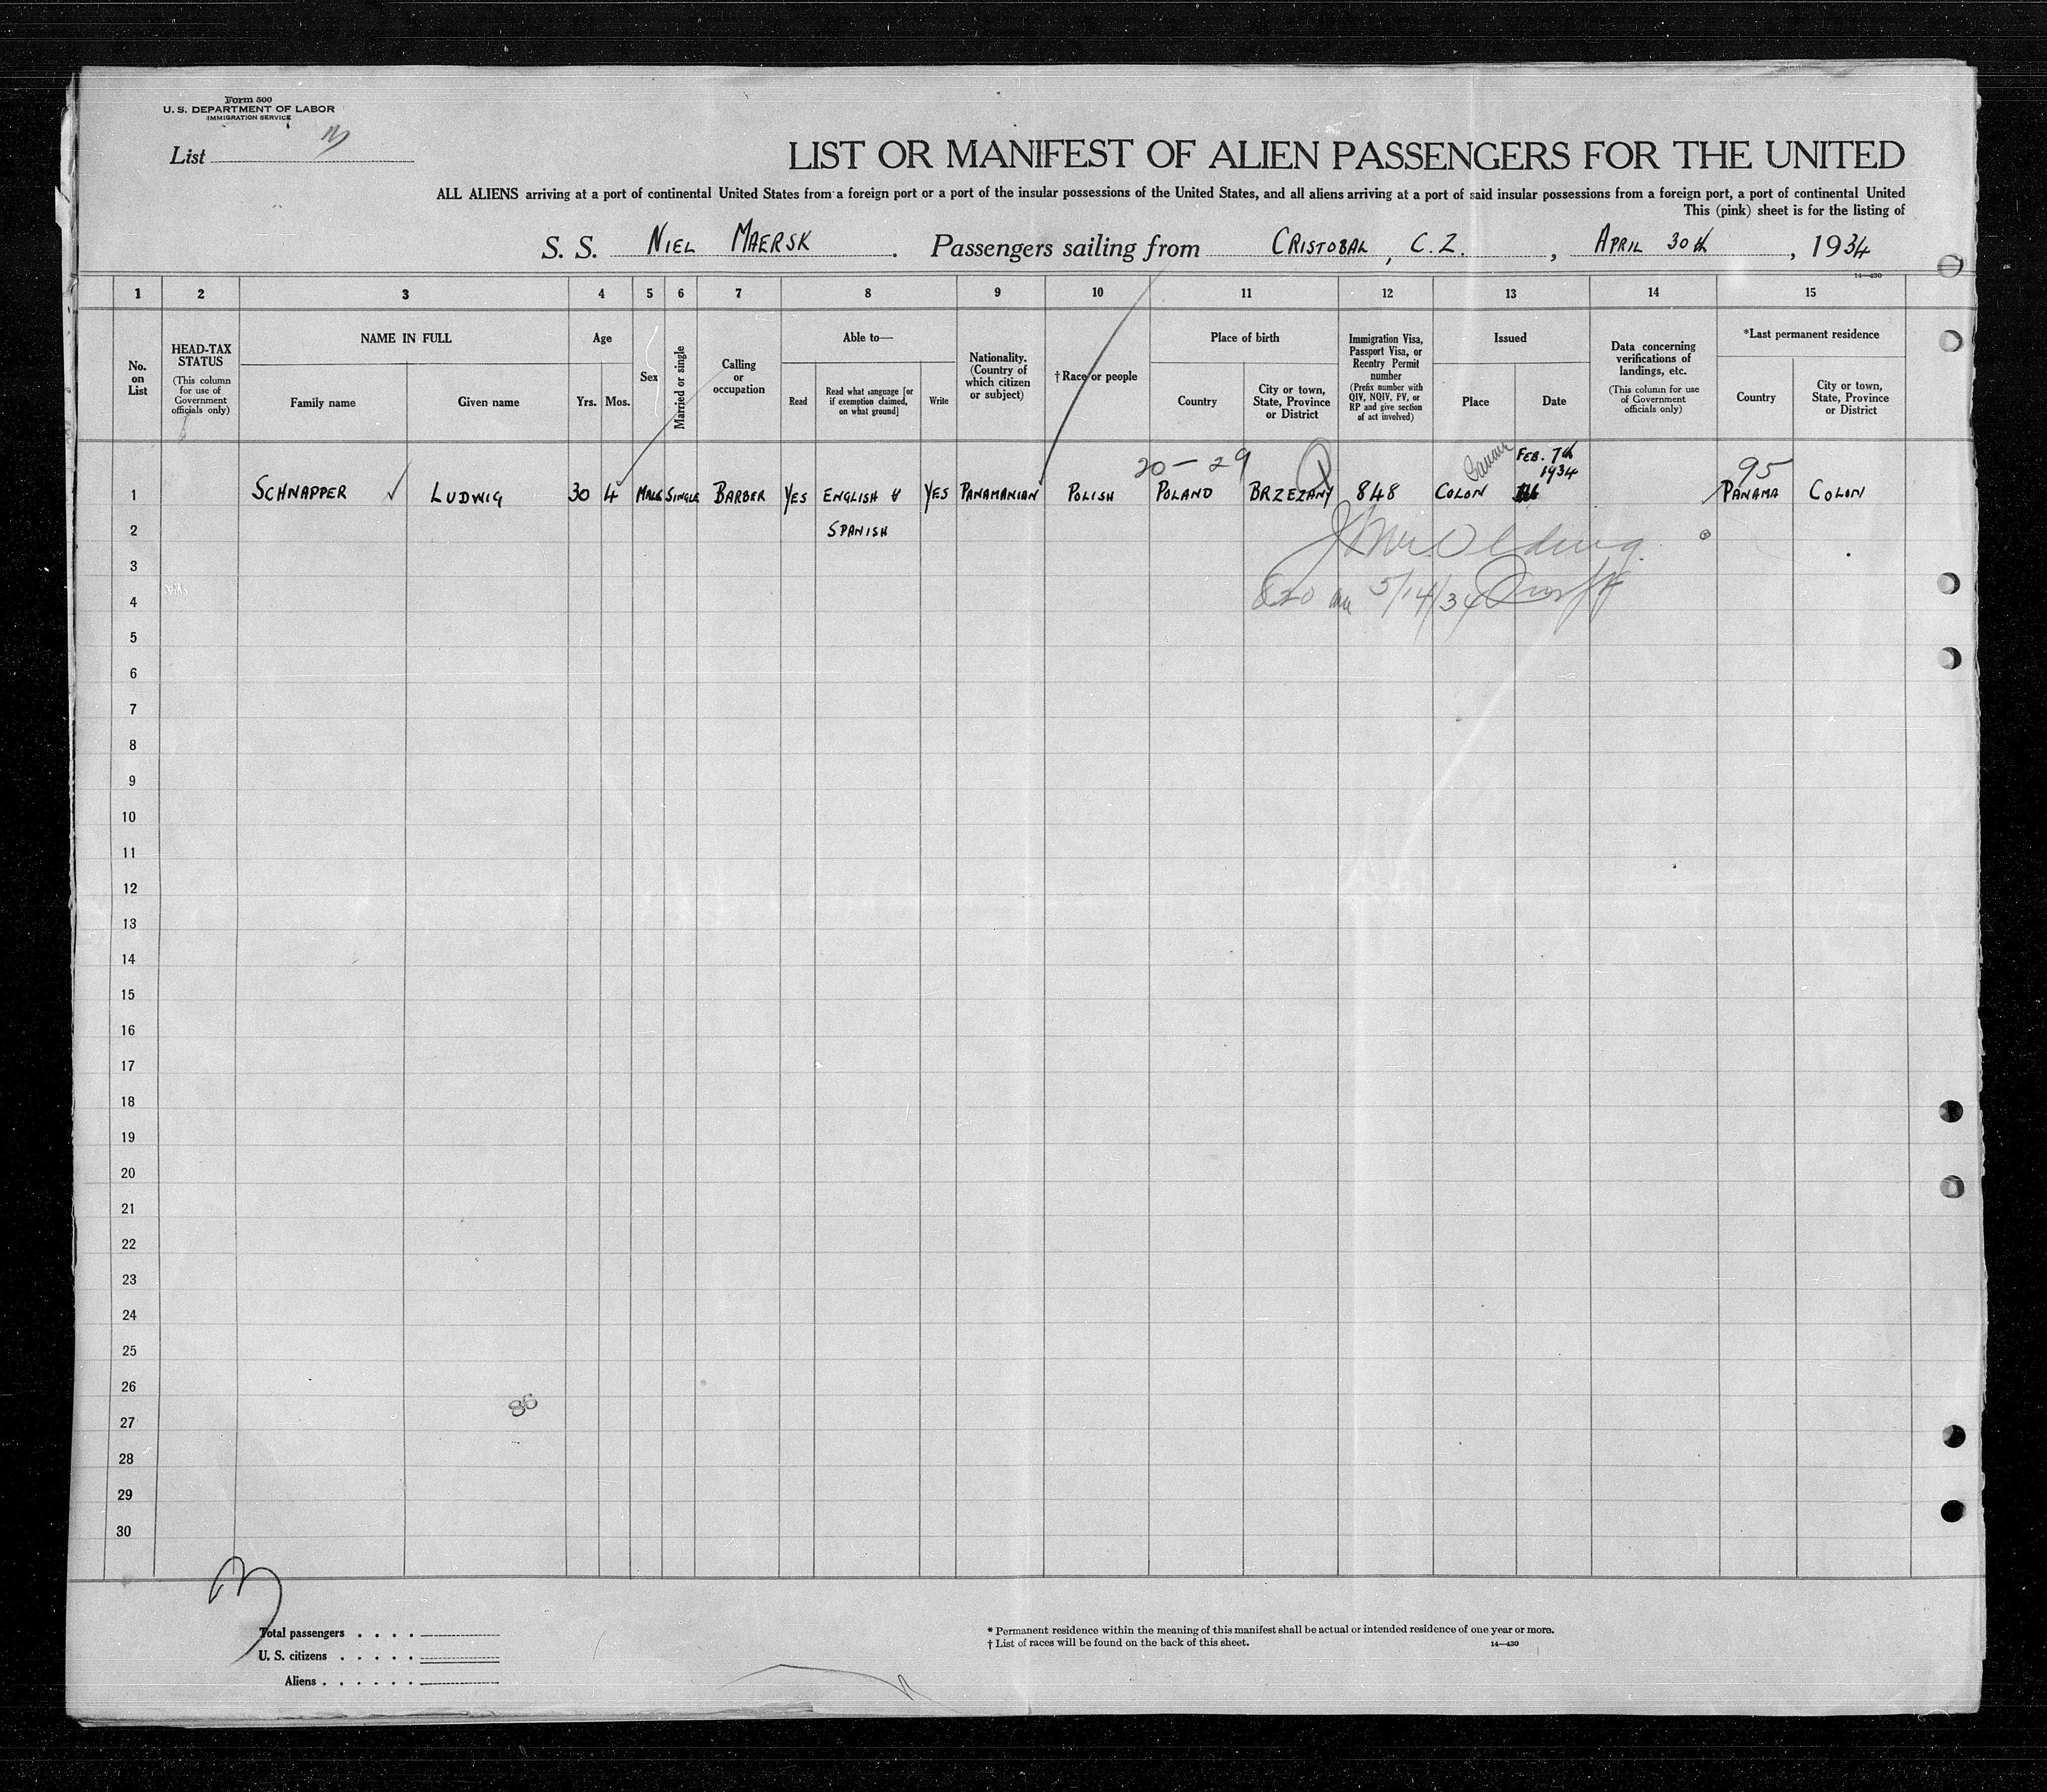 Form 500
U. S. DEPARTMENT OF LABOR
IMMIGRATION SERVICE
List
LIST OR MANIFEST OF ALIEN PASSENGERS FOR THE UNITED
ALL ALIENS arriving at a port of continental United States from a foreign port or a port of the insular possessions of the United States, and all aliens arriving at a port of said insular possessions from a foreign port, a port of continental United
This (pink) sheet is for the listing of
S. S. NIEL MAERSK. Passengers sailing from CRISTOBAL, C. Z., APRIL 30th, 1934
14—430
1 2 3 4 5 6 7 8 9 10 11 12 13 14 15
No. on List
HEAD-TAX STATUS
(This column for use of Government officials only)
NAME IN FULL
Family name
Given name
Age
Yrs.
Mos.
Sex
Married or single
Calling or occupation
Able to—
Read
Read what language [or if exemption claimed, on what ground]
Write
Nationality. (Country of which citizen or subject)
†Race or people
Place of birth
Country
City or town, State, Province or District
Immigration Visa, Passport Visa, or Reentry Permit number
(Prefix number with QIV, NQIV, PV, or RP and give section of act involved)
Issued
Place
Date
Data concerning verifications of landings, etc.
(This column for use of Government officials only)
*Last permanent residence
Country
City or town, State, Province or District
20 – 29
FEB. 7th
1934
95
1 SCHNAPPER LUDWIG 30 4 MALE SINGLE BARBER YES ENGLISH & YES PANAMANIAN POLISH POLAND BRZEZANY 848 COLON PANAMA COLON
2 SPANISH
3
4 820 5/14/34
5
6
7
8
9
10
11
12
13
14
15
16
17
18
19
20
21
22
23
24
25
26
86
27
28
29
30
Total passengers . . . .
U. S. citizens . . . . .
Aliens . . . . . .
* Permanent residence within the meaning of this manifest shall be actual or intended residence of one year or more.
† List of races will be found on the back of this sheet.
14—430